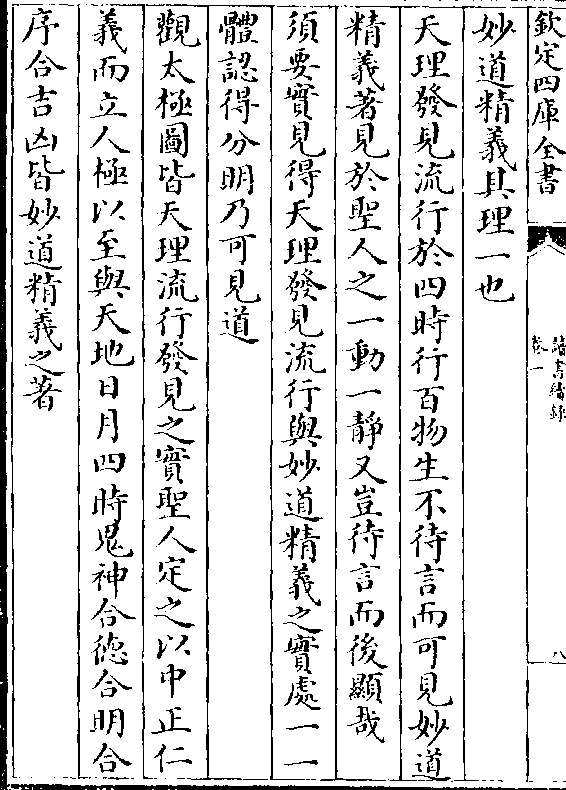 欽定四庫全書
讀書續錄
卷一
八
妙道精義其理一也
天理發見流行於四時行百物生不待言而可見妙道
精義著見於聖人之一動一靜又豈待言而後顯哉
須要實見得天理發見流行與妙道精義之實處一一
體認得分明乃可見道
觀太極圖皆天理流行發見之實聖人定之以中正仁
義而立人極以至與天地日月四時鬼神合德合明合
序合吉凶皆妙道精義之著